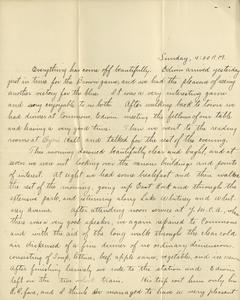 Sunday, 4:00 P.M.
Everything has come off beautifully. Edwin arrived yesterday
just in time for the Brown game, and we had the pleasure of seeing
another victory for the blue. It was a very interesting game
and very enjoyable to us both. After walking back to town we
had dinner at Commons, Edwin meeting the fellows of our table
and having a very good time. Then we went to the reading
room at Byers Hall and talked for the rest of the evening.
This morning dawned beautifully clear and bright, and at
seven we were out looking over the various buildings and points
of interest. At eight we had some breakfast and then walked
the rest of the morning, going up East Rock and through the
extensive park, and returning along Whitney and Whit-
ney Avenue. After attending noon service at Y.M.C.A., where
there was a very good speaker, we again repaired to Commons
and with the aid of the long walk through the clear cold
air disposed of a fine dinner of no ordinary dimensions,
consisting of soup, lettuce, beef, apple sauce, vegetable, and ice cream.
After finishing leisurely we rode to the station and Edwin
left on the two train. His trip cost him only
and I think he managed to have a very pleasant